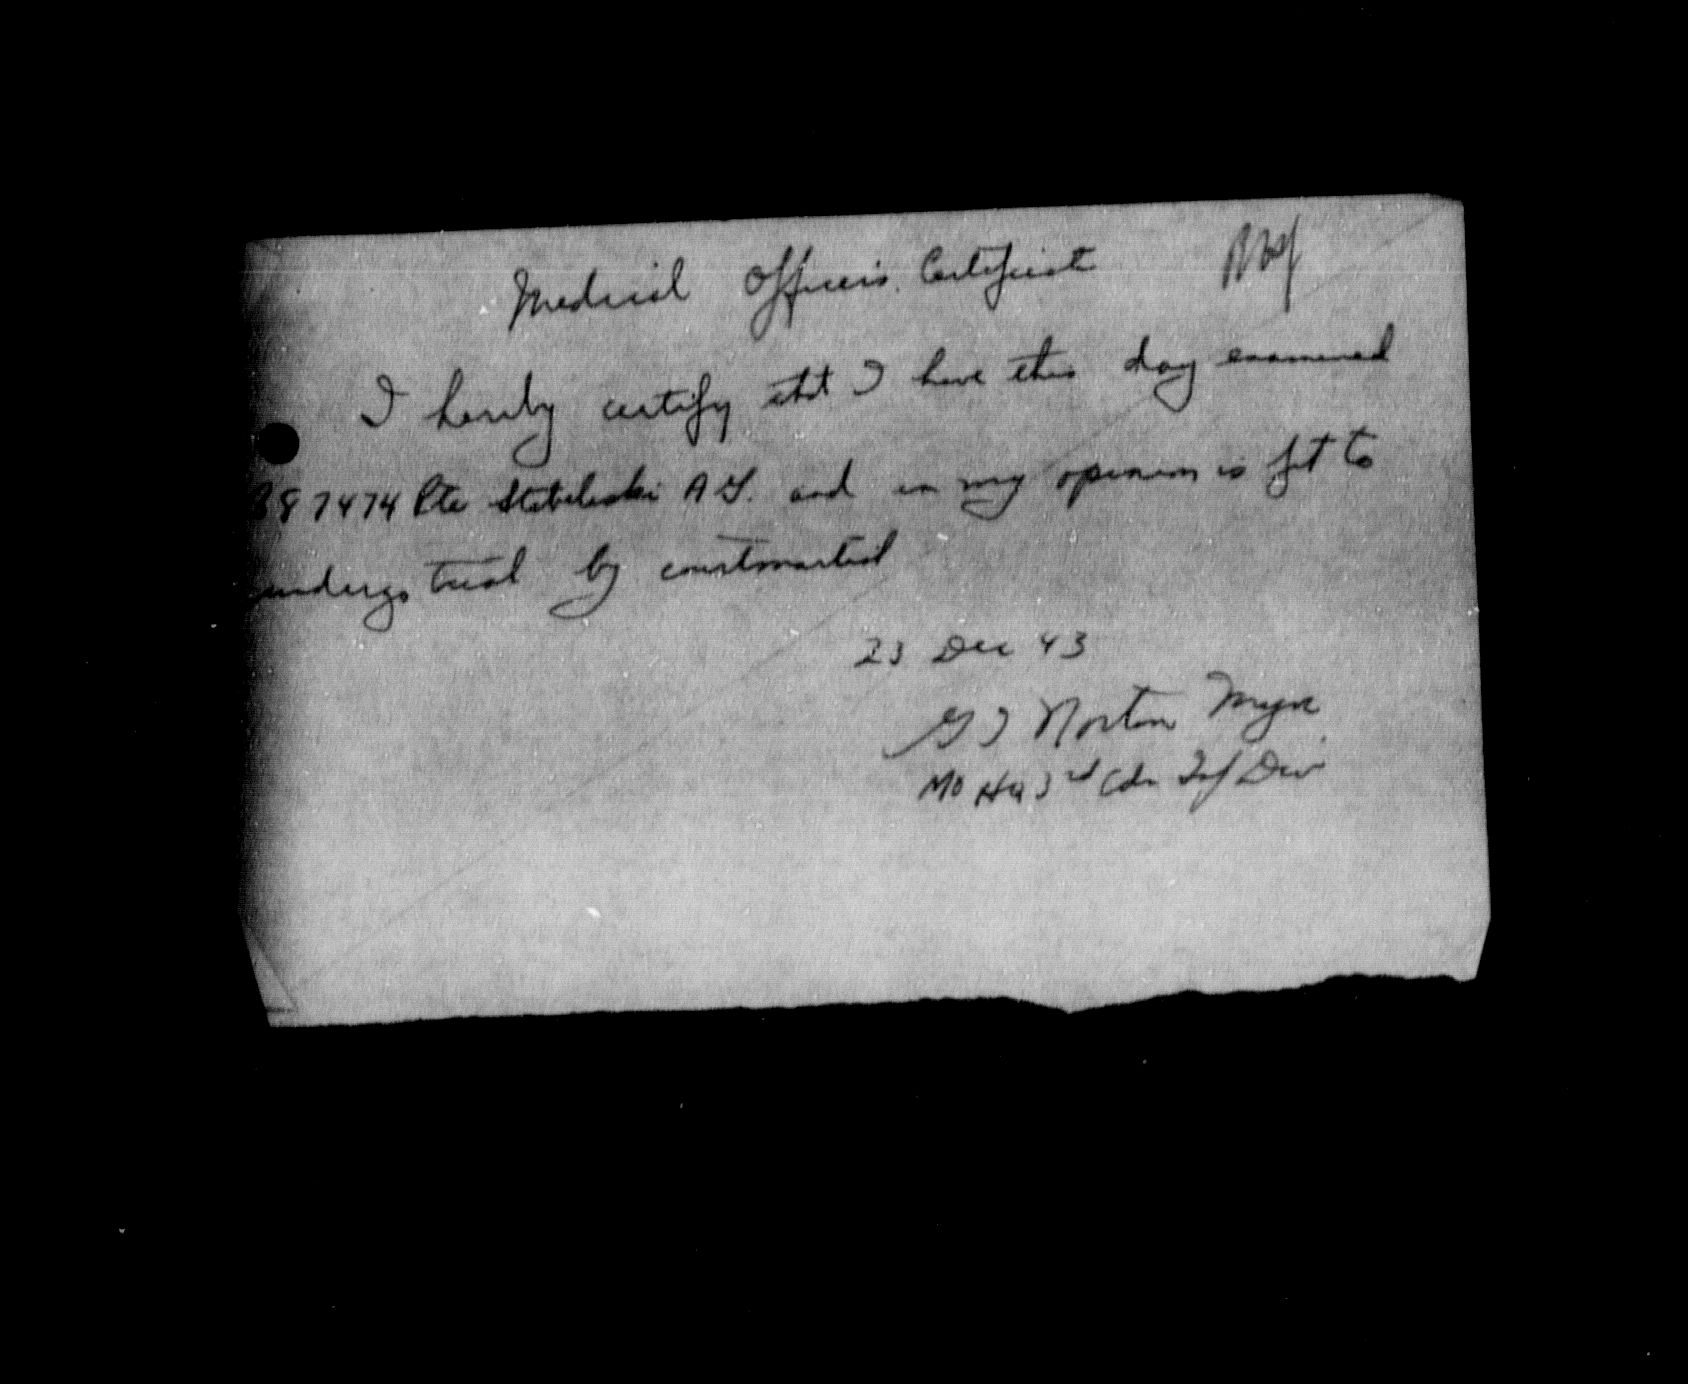 Medical Officers Certificate
I hereby certify that I have this day examined
B87474 Pte A G. and in my opinion is fit to
undergo trial by courtmartial
23 Dec 43
Norton Major
MO HQ 3rd Cdn Inf Div